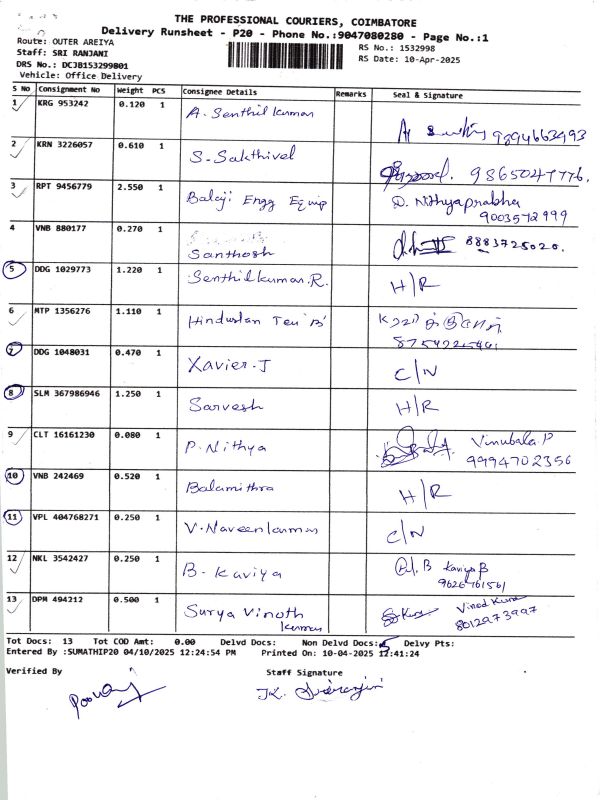 THE PROFESSIONAL COURIERS, COIMBATORE
Delivery Runsheet - P20 - Phone No.:9047080280 - Page No.:1
Route: OUTER AREIYA
RS No.: 1532998
Staff: SRI RANJANI
RS Date: 10-Apr-2025
DRS No.: DCJB153299801
Vehicle: Office Delivery
S No Consignment No Weight PCS Consignee Details Remarks Seal & Signature
1 KRG 953242 0.120 1 A. Senthil kumar 9894663993
2 KRN 3226057 0.610 1 S. Sakthivel
3 RPT 9456779 2.550 1 Balaji Engg Equip D. Nithyaprabha
9003572999
4 VNB 880177 0.270 1 Santhosh 8883725020.
5 DDG 1029773 1.220 1 Senthil kumar. R. H/R
6 MTP 1356276 1.110 1 Hindustan
7 DDG 1048031 0.470 1 Xavier. J C/N
8 SLM 367986946 1.250 1 Sarvesh H/R
9 CLT 16161230 0.080 1 P. Nithya Vinubala. P
9994702356
10 VNB 242469 0.520 1 Balamithra H/R
11 VPL 404768271 0.250 1 V. Naveenkumar C/N
12 NKL 3542427 0.250 1 B. Kaviya Kaviya B
9626761561
13 DPM 494212 0.500 1 Surya Vinoth Vinod Kumar
Kumar 8012973997
Tot Docs: 13 Tot COD Amt: 0.00 Delvd Docs: Non Delvd Docs: 5 Delvy Pts:
Entered By :SUMATHIP20 04/10/2025 12:24:54 PM Printed On: 10-04-2025 12:41:24
Verified By Staff Signature